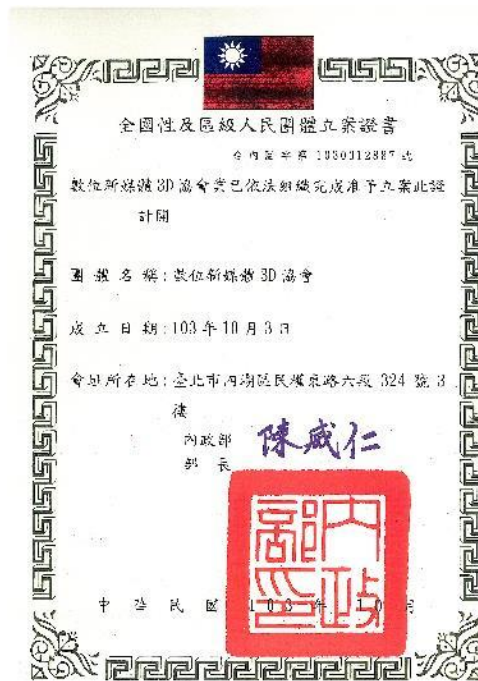 全國性及區級人民團體立案證書
台內團字第 1030312887 號
數位新媒體 3D 協會業已依法組織完成准予立案此證
計開
團體名稱：數位新媒體 3D 協會
成立日期：103 年 10 月 3 日
會址所在地：臺北市內湖區民權東路六段 324 號 3
樓
內政部
部長
陳威仁
內政部印
中華民國 103 年 10 月